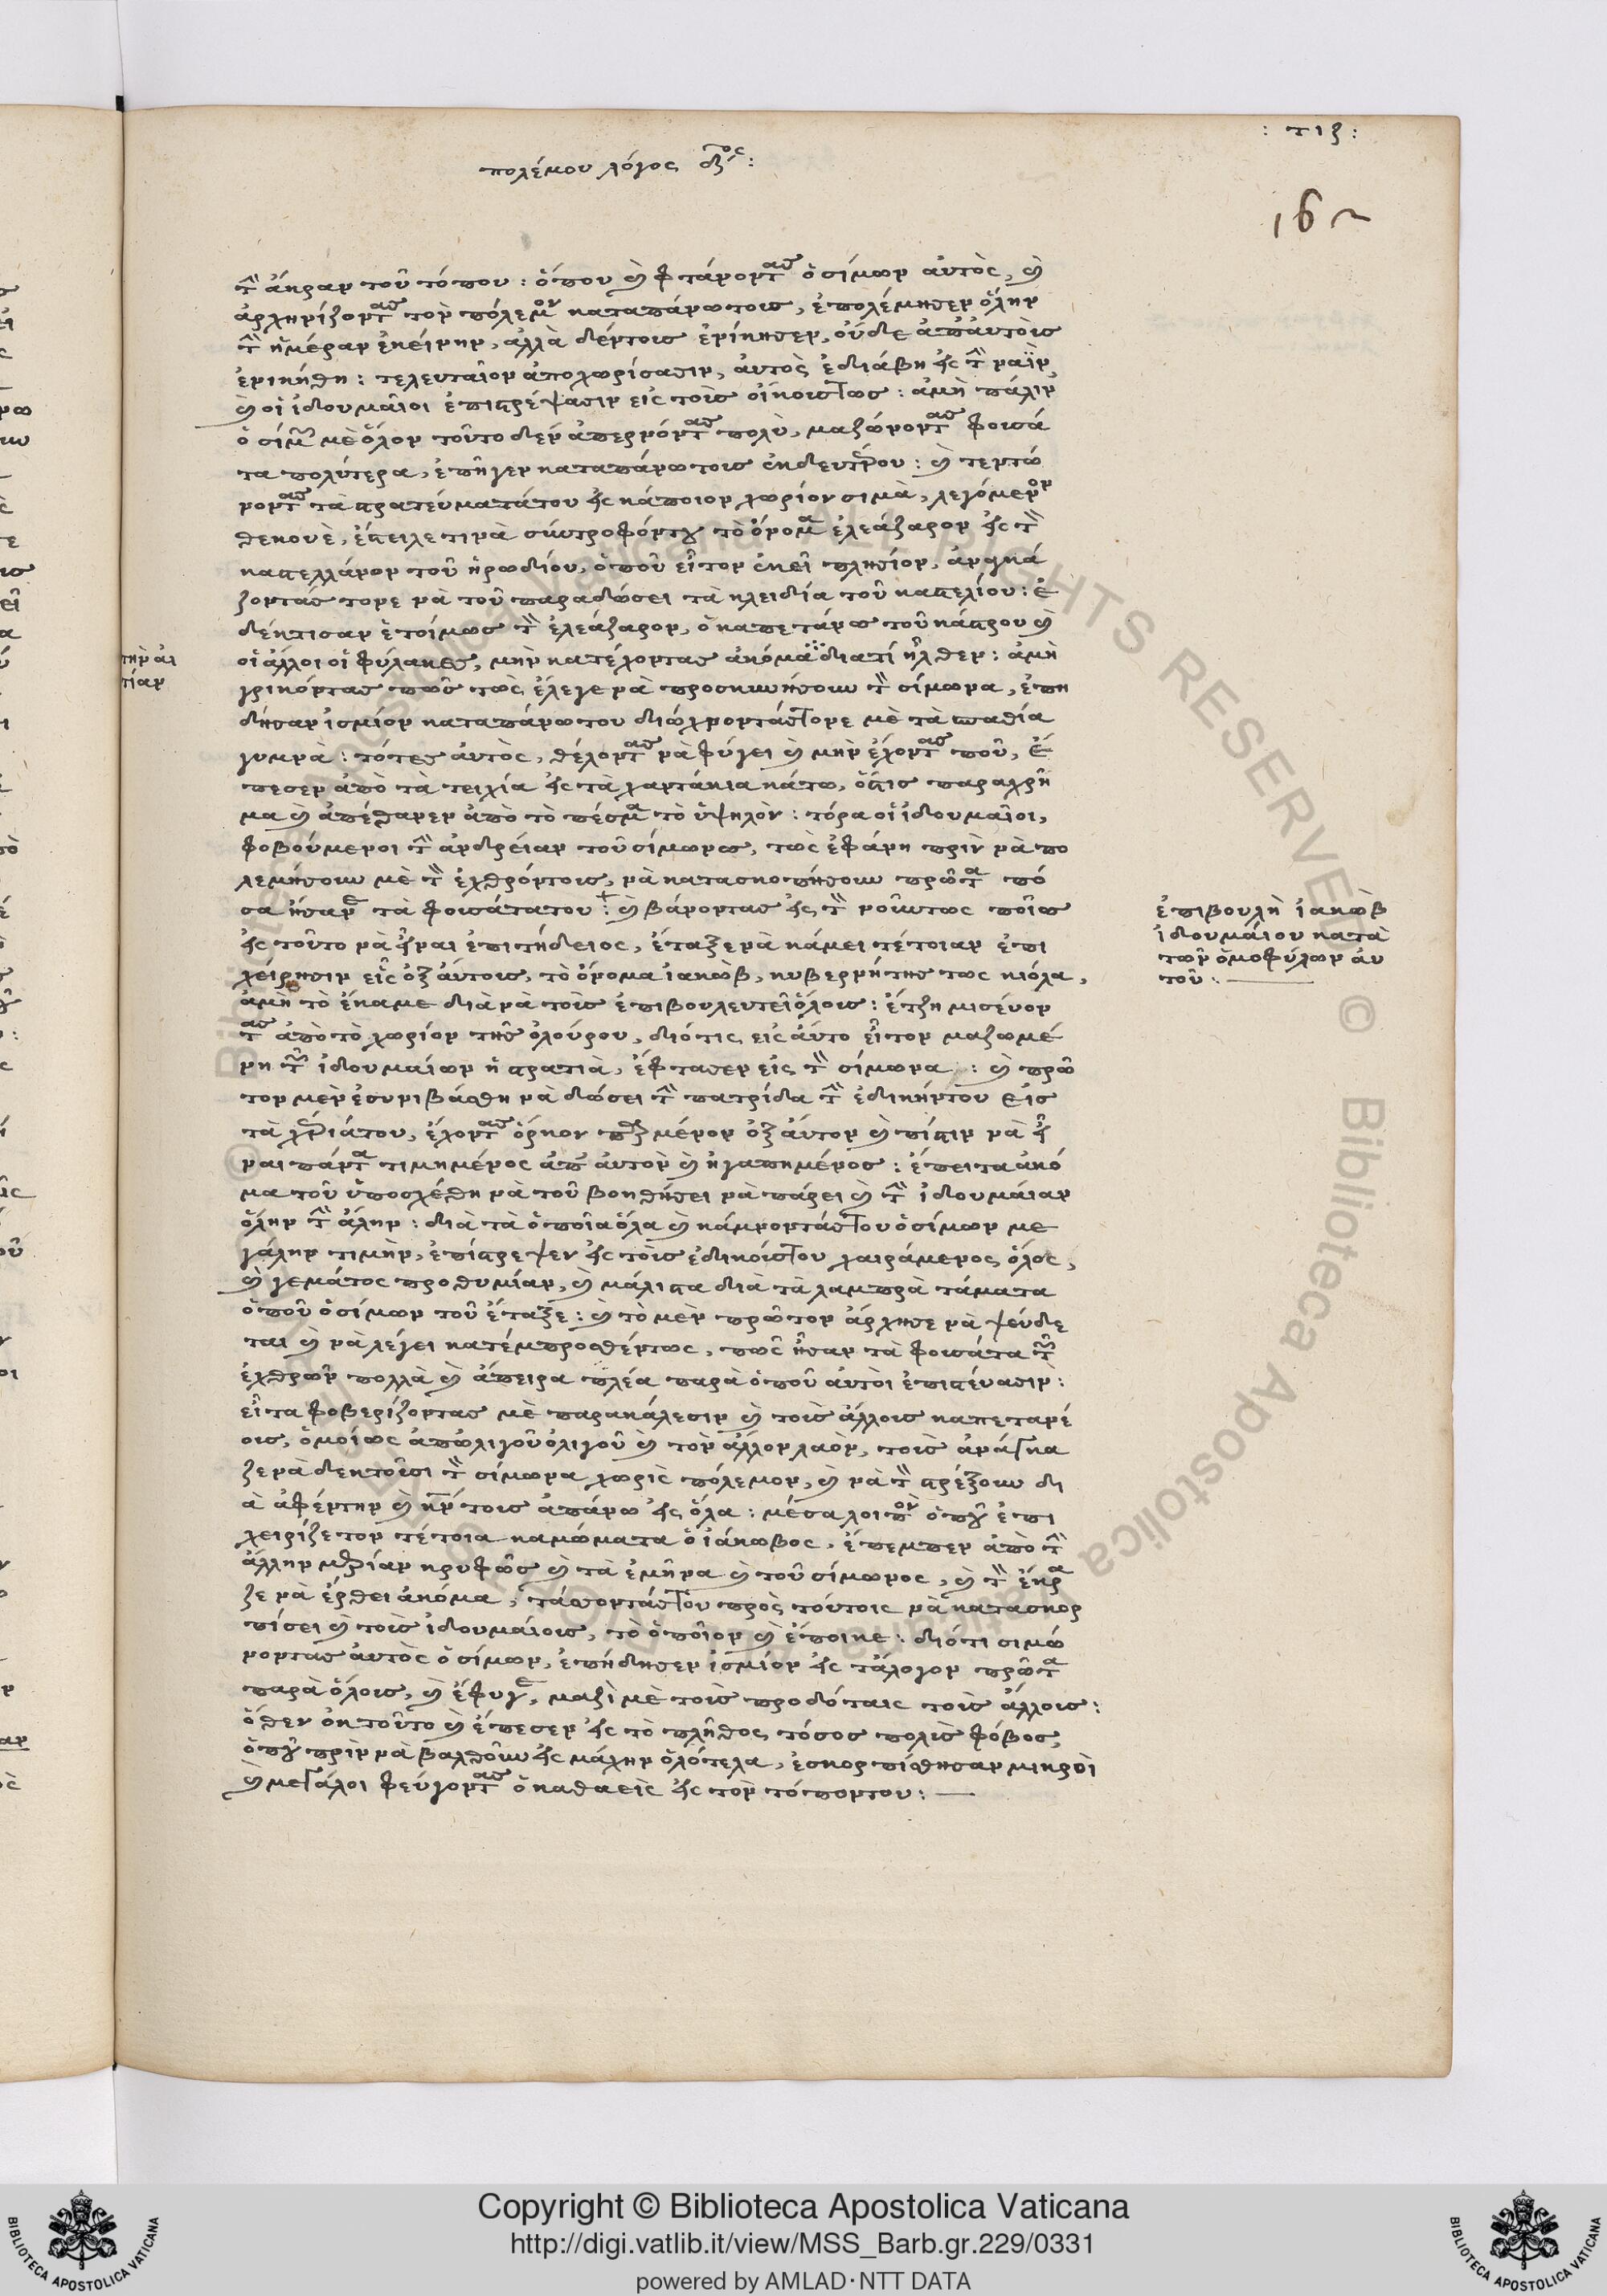 : τιζ :
πολέμου λόγος δ´ος :
162
τὴν ἄκραν τοῦ τόπου : ὅπου καὶ φτάνοντας ὁ σίμων αὐτὸς, καὶ
ἀρχηνίζοντας τὸν πόλεμον καταπάνωτους, ἐπολέμησεν ὅλην
τὴν ἡμέραν ἐκείνην, ἀλλὰ δέντους ἐνίκησεν, οὐδὲ ἀπ' αὐτοὺς
ἐνικήθη : τελευταῖον ἀποχωρίσασιν, αὐτὸς ἐδιάβη εἰς τὴν ναῒν,
καὶ οἱ ἰδουμαῖοι ἐπιστρέψασιν εἰς τοὺς οἴκουστως : ἀμὴ πάλιν
ὁ σίμων μὲ ὅλον τοῦτο δὲν ἀπερνόντας πολὺ, μαζώνοντας φουσά
τα πολύτερα, ἐπῆγεν καταπάνωτους ἐκδευτέρου : καὶ τεντώ
νοντας τὰ στρατεύματάτου εἰς κάποιον χωρίον σιμὰ, λεγόμενον
θεκουὲ, ἔστειλε τινὰ σύντροφόντου τὸ ὄνομα ἐλεάζαρον εἰς τὸν
καστελλάνον τοῦ ἡρωδίου, ὁποῦ εἶτον ἐκεῖ πλησίον, ἀναγκά
ζοντάς τονε νὰ τοῦ παραδώσει τὰ κλειδία τοῦ καστελίου : ἐ
δέκτισαν ἑτοίμως τὸν ἐλεάζαρον, ὁ καπετάνος τοῦ κάστρου καὶ
οἱ ἄλλοι οἱ φύλακες, μὴν κατέχοντας ἀκόμα διατί ἦλθεν : ἀμὴ
γρικόντας πῶς τῶς ἔλεγε νὰ προσκυνήσουν τὸν σίμωνα, ἐπη
δήσαν ἰσμίον καταπάνωτου διώχνοντάςτονε μὲ τὰ σπαθία
γυμνὰ : τότες αὐτὸς, θέλοντας νὰ φύγει καὶ μὴν ἔχοντας ποῦ, ἔ
πεσεν ἀπὸ τὰ τειχία εἰς τὰ χαντάκια κάτω, ὅστις παραχρῆ
μα καὶ ἀπέθανεν ἀπὸ τὸ πέσμα τὸ ὑψηλὸν : τόρα οἱ ἰδουμαῖοι,
φοβούμενοι τὴν ἀνδρείαν τοῦ σίμωνος, τῶς ἐφάνη πρὶν νὰ πο
λεμήσουν μὲ τὸν ἐχθρόντους, νὰ κατασκοπήσουν πρῶτα πό
σα ἦσαν τὰ φουσάτατου : καὶ βάνοντας εἰς τὸν νοῦντως ποῖος
εἰς τοῦτο νὰ εἶναι ἐπιτήδειος, ἔταξε νὰ κάμει τέτοιαν ἐπι
χείρησιν εἷς ὀξ αὐτους, τὸ ὄνομα ἰακὼβ, κυβερνήτης τως κιόλα,
ἀμὴ τὸ ἔκαμε διὰ να τοὺς ἐπιβουλευτεῖ ὅλους : ἔτζη μισέυον
τας ἀπὸ τὸ χωρίον τῆς ὀλούρου, διότις εἰς αὐτο εἶτον μαζωμέ
νη τῶν ἰδουμαίων ἡ στρατιὰ, ἔφτασεν εἰς τὸν σίμωνα : καὶ πρῶ
τον μὲν ἐσυνιβάσθη νὰ δώσει τὴν πατρίδα τὴν ἐδικήντου εἰς
τὰ χεριάτου, ἔχοντας ὅρκον παρμένον ὀξ αὐτον καὶ πίστιν νὰ εἶ
ναι πάντα τιμημένος ἀπ' αὐτον καὶ ἠγαπημένος : ἔπειτα ἀκό
μα τοῦ ὑποσχέθη νὰ τοῦ βοηθήσει νὰ πάρει καὶ τὴν ἰδουμαίαν
ὅλην τὴν ἄλην : διὰ τὰ ὁποῖα ὅλα καὶ κάμνοντάςτου ὁ σίμων με
γάλην τιμὴν, ἐπίστρεψεν εἰς τοὺς ἐδικούςτου χαιράμενος ὅλος,
καὶ γεμάτος προθυμίαν, καὶ μάλιστα διὰ τὰ λαμπρὰ τάματα
ὁποῦ ὁ σίμων τοῦ ἔταξε : καὶ τὸ μὲν πρῶτον ἄρχησε νὰ ψεύδε
ται καὶ νὰ λέγει κατέμπροσθέντως, πῶς ἦσαν τὰ φουσάτα τῶν
ἐχθρῶν πολλὰ καὶ ἄπειρα πλέα παρὰ ὁποῦ αὐτοὶ ἐπιστέυασιν :
εἶτα φοβερίζοντας μὲ παρακάλεσιν καὶ τοὺς ἄλλους καπετανέ
ους, ὁμοίως ἀπὠλιγοῦ ὀλιγοῦ καὶ τὸν ἄλλον λαὸν, τοὺς ἀνάγκα
ζε νὰ δεκτοῦσι τὸν σίμωνα χωρὶς πόλεμον, καὶ νὰ τὸν στρέξουν δι
ὰ ἀφέντην καὶ κύριν τους ἀπάνω εἰς ὅλα : μέσα λοιπὸν ὁποῦ ἐπι
χειρίζετον τέτοια καμώματα ὁ ἰάκωβος, ἔπεμπεν ἀπὸ τὴν
ἄλλην μερίαν κρυφῶς καὶ τὰ ἐμήνα καὶ τοῦ σίμωνος, καὶ τὸν ἔκρα
ζε νὰ έρθει ἀκόμα, τάσσοντάςτου πρὸς τούτοις νὰ κατασκορ
πίσει καὶ τοὺς ἰδουμαίους, τὸ ὁποῖον καὶ ἔποικε : διότι σιμώ
νοντας αὐτὸς ὁ σίμων, ἐπήδησεν ἰσμίον εἰς τἄλογον πρῶτα
παρὰ ὅλους, καὶ ἔφυγε, μαζὶ μὲ τοὺς προδόταις τοὺς ἄλλους :
ὅθεν ὀκ τοῦτο καὶ ἔπεσεν εἰς τὸ πλῆθος τόσος πολὺς φόβος,
ὁποῦ πρὶν νὰ βαλθοῦν εἰς μάχην ὁλότελα, ἐσκορπίσθησαν μικροὶ
καὶ μεγάλοι φεύγοντας ὁ καθαεὶς εἰς τὸν τόποντου : —
τὴν ἀι
τίαν
ἐπιβουλὴ ἰακὼβ
ἰδουμαίου κατὰ
τῶν ὁμοφύλων αὐ
τοῦ : —
Copyright © Biblioteca Apostolica Vaticana
http://digi.vatlib.it/view/MSS_Barb.gr.229/0331
powered by AMLAD·NTT DATA